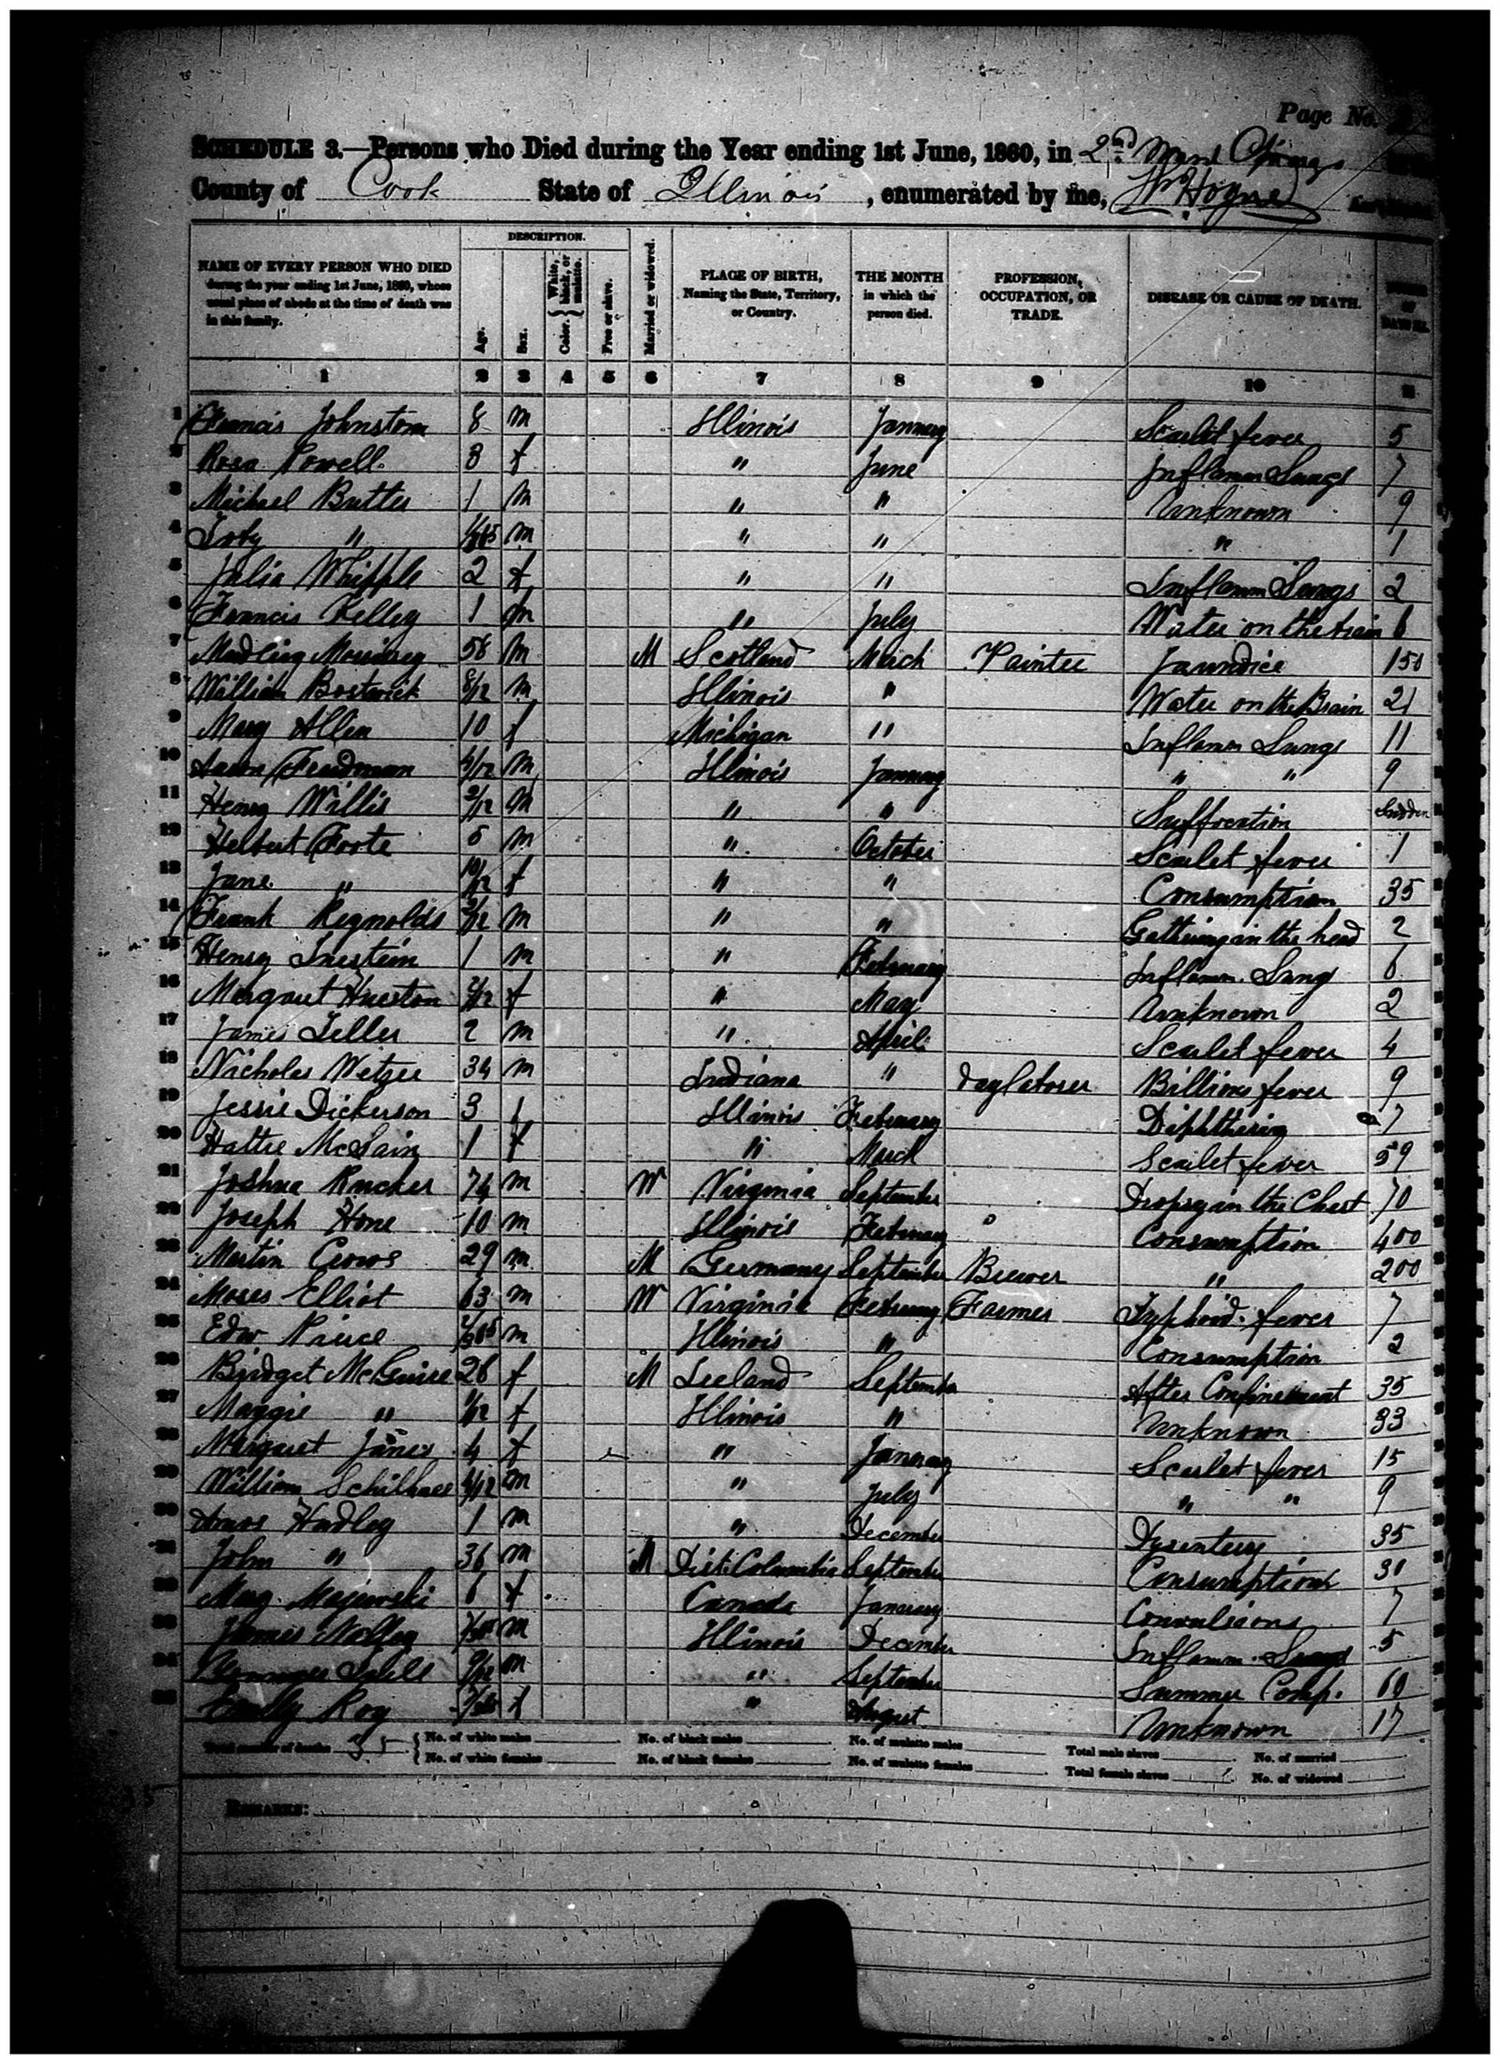 Page No.
SCHEDULE 3.—Persons who Died during the Year ending 1st June, 1860, in 2nd Ward Chicago
County of Cook State of Illinois, enumerated by me, Hoyne
DESCRIPTION.
NAME OF EVERY PERSON WHO DIED during the year ending 1st June, 1860, whose usual place of abode at the time of death was in this family.
Age.
Sex.
Color. { White, black, or mulatto.
Free or slave.
Married or widowed.
PLACE OF BIRTH, Naming the State, Territory, or Country.
THE MONTH in which the person died.
PROFESSION, OCCUPATION, OR TRADE.
DISEASE OR CAUSE OF DEATH.
1 2 3 4 5 6 7 8 9 10 11
1 Francis Johnston 8 m Illinois January Scarlet fever 5
2 Rosa Powell 8 f " June Inflamm Lungs 7
3 Michael Butler 1 m " " Unknown 9
4 " 1/365 m " " " 1
5 Julia Whipple 2 f " " Inflamm Lungs 2
6 Francis Kelley 1 m " July Water on the brain 6
7 58 m M Scotland March Painter Jaundice 150
8 William Bostwick 8/12 m Illinois " Water on the Brain 21
9 Mary Allen 10 f Michigan " Inflamm Lungs 11
10 4/12 m Illinois January " " 9
11 Henry Willis 2/12 m " " Suffocation Sudden
12 Helbert Foote 5 m " October Scarlet fever 1
13 Jane " 10/12 f " " Consumption 35
14 Frank Reynolds m " " Gathering in the head 2
15 Henry 1 m " February Inflamm. Lung 6
16 Margaret Hueston f " May Unknown 2
17 James Teller 2 m " April Scarlet fever 4
18 Nicholas Wetzer 34 m Indiana " day laborer Billious fever 9
19 Jessie Dickerson 3 f Illinois February Diphtheria 7
20 Hattie McLain 1 f " March Scarlet fever 59
21 Joshua Rucker 74 m W Virginia September Dropsy in the Chest 70
22 Joseph Hone 10 m Illinois February Consumption 400
23 Martin Crows 29 m M Germany September Brewer " 200
24 Moses Elliot 63 m W Virginia February Farmer Typhoid fever 7
25 Edw Pierce m Illinois " Consumption 2
26 Bridget McGuire 26 f M Ireland September After Confinement 35
27 Maggie " 1/12 f Illinois " Unknown 33
28 Margaret Janes 4 f " January Scarlet fever 15
29 William 4/12 m " July " " 9
30 Amos Hadley 1 m " December Dysentery 35
31 John " 36 m M Dist. Columbia September Consumption 30
32 Mary Majewski 6 f Canada January Convulsions 7
33 James m Illinois December Inflamm. Lungs 5
34 9/12 m " September Summer Comp. 60
35 Emily Roy f " August Unknown 17
Total number of deaths 35 { No. of white males No. of black males No. of mulatto males Total male slaves No. of married
{ No. of white females No. of black females No. of mulatto females Total female slaves No. of widowed
35
REMARKS: